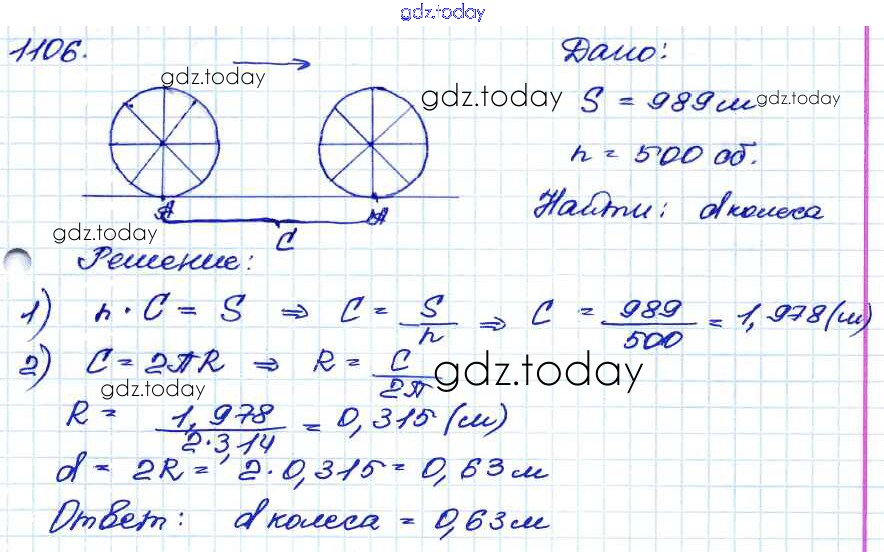 gdz.today
1106.
gdz.today
A A
C
Дано:
gdz.today gdz.today
S = 989 м
n = 500 об.
Найти: d колеса
gdz.today
Решение:
1) n · C = S ⇒ C = S/n ⇒ C = 989/500 = 1,978 (м)
2) C = 2πR ⇒ R = C/2π
gdz.today gdz.today
R = 1,978/2·3,14 = 0,315 (м)
d = 2R = 2·0,315 = 0,63 м
Ответ: d колеса = 0,63 м